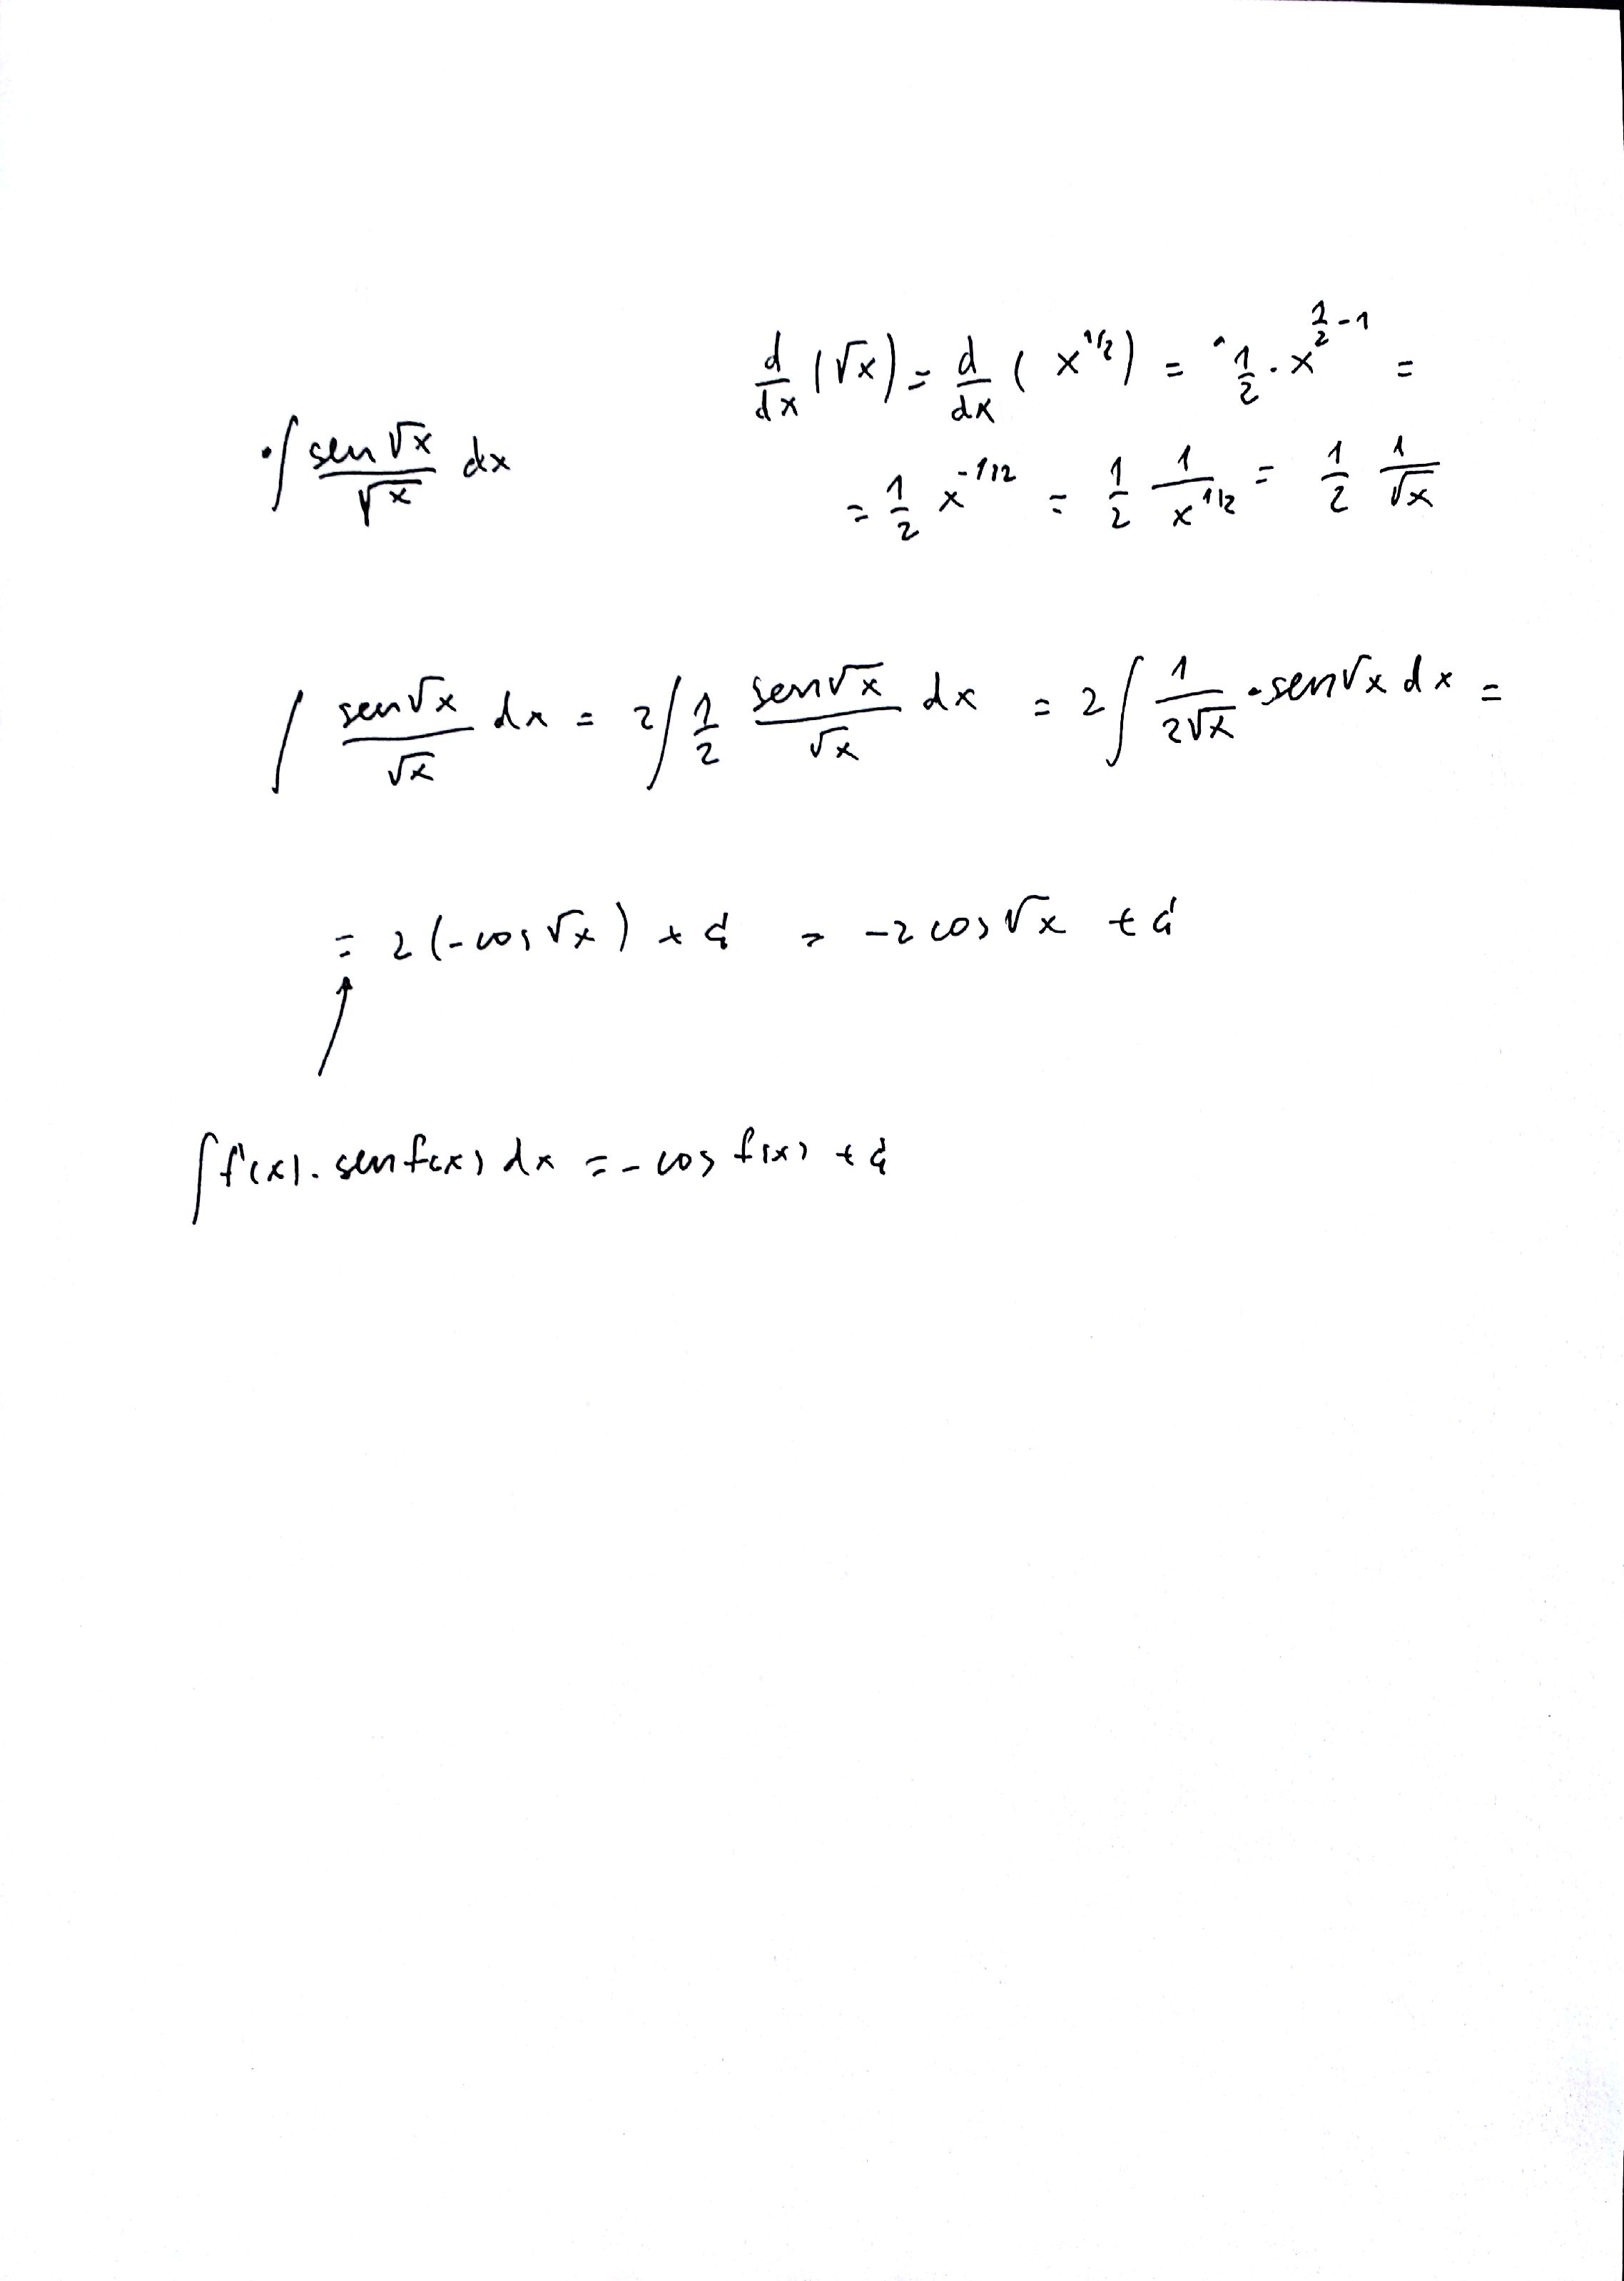 d/dx (√x) = d/dx ( x^1/2 ) = 1/2 · x^(1/2 - 1) =
· ∫ sen √x / √x dx
= 1/2 x^-1/2 = 1/2 1/x^1/2 = 1/2 1/√x
∫ sen√x / √x dx = 2∫ 1/2 sen√x / √x dx = 2∫ 1/2√x · sen√x dx =
= 2(-cos √x) + C = -2 cos √x + C
∫ f'(x). sen f(x) dx = - cos f(x) + C